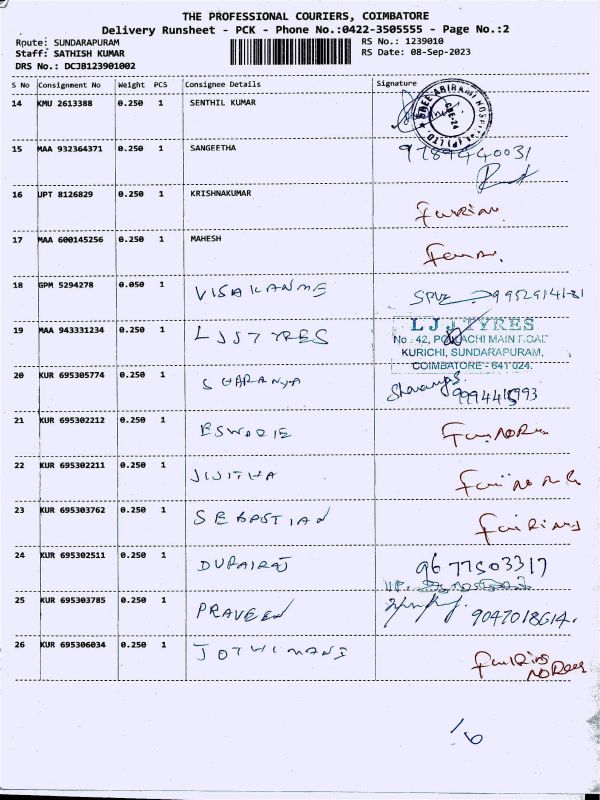 THE PROFESSIONAL COURIERS, COIMBATORE
Delivery Runsheet - PCK - Phone No.:0422-3505555 - Page No.:2
Route: SUNDARAPURAM RS No.: 1239010
Staff: SATHISH KUMAR RS Date: 08-Sep-2023
DRS No.: DCJB123901002
S No Consignment No Weight PCS Consignee Details Signature
14 KMU 2613388 0.250 1 SENTHIL KUMAR
SREE ABIRAMI HOSPITAL (P) LTD. CBE-24
15 MAA 932364371 0.250 1 SANGEETHA 9789440031
16 JPT 8126829 0.250 1 KRISHNAKUMAR
17 MAA 600145256 0.250 1 MAHESH
18 GPM 5294278 0.050 1 VISAKANME
19 MAA 943331234 0.250 1 LJJ TYRES
LJJ TYRES
No : 42, POLLACHI MAIN ROAD
KURICHI, SUNDARAPURAM,
COIMBATORE - 641 024.
20 KUR 695305774 0.250 1 SHARANYA Sharanya.S
21 KUR 695302212 0.250 1 ESWARIE
22 KUR 695302211 0.250 1 JIJITHA
23 KUR 695303762 0.250 1 SEBASTIAN
24 KUR 695302511 0.250 1 DURAIRAJ 9677503317
25 KUR 695303785 0.250 1 PRAVEEN 9047018614.
26 KUR 695306034 0.250 1 JOTHIMANI